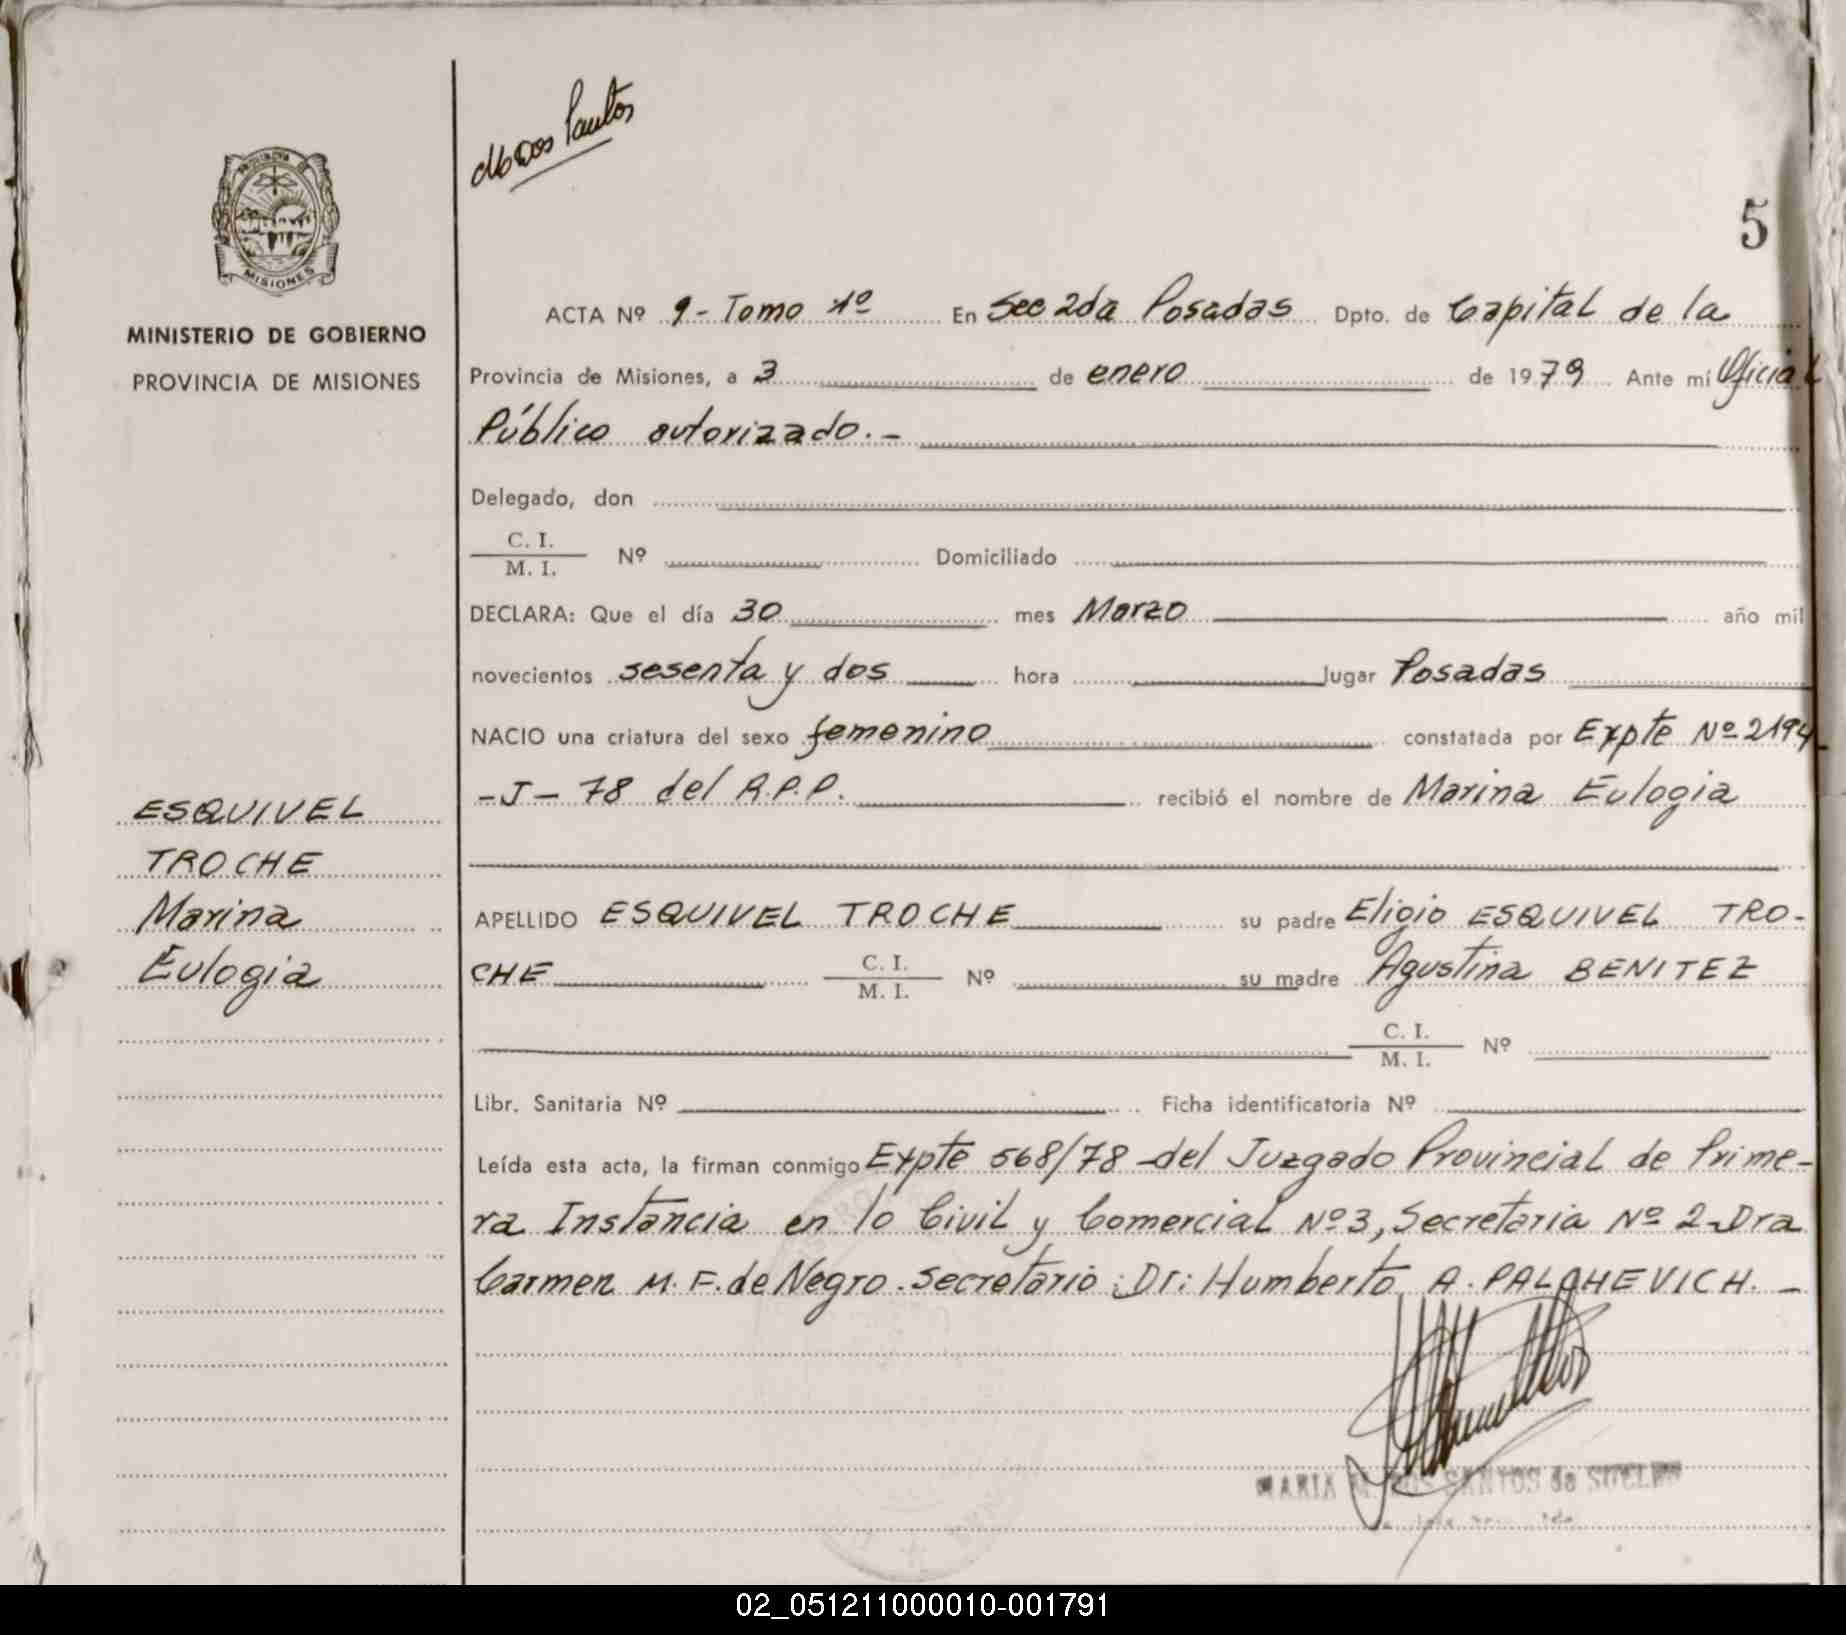 M Dos Santos
5
PROVINCIA DE
MISIONES
MINISTERIO DE GOBIERNO
PROVINCIA DE MISIONES
ESQUIVEL
TROCHE
Marina
Eulogia
ACTA Nº 9 - Tomo 1º En Sec 2da Posadas Dpto. de Capital de la
Provincia de Misiones, a 3 de enero de 1979 Ante mí Oficial
Público autorizado. -
Delegado, don
C. I.
M. I. Nº Domiciliado
DECLARA: Que el día 30 mes Marzo año mil
novecientos sesenta y dos hora lugar Posadas
NACIO una criatura del sexo femenino constatada por Expte Nº 2194
- J - 78 del R.P.P. recibió el nombre de Marina Eulogia
APELLIDO ESQUIVEL TROCHE su padre Eligio ESQUIVEL TRO-
CHE C. I.
M. I. Nº su madre Agustina BENITEZ
C. I.
M. I. Nº
Libr. Sanitaria Nº Ficha identificatoria Nº
Leída esta acta, la firman conmigo Expte 568/78 - del Juzgado Provincial de Prime-
ra Instancia en lo Civil y Comercial Nº 3, Secretaria Nº 2 - Dra
Carmen M. F. de Negro. Secretario: Dr: Humberto A. PALCHEVICH. -
MARIA M. DOS SANTOS de
02_051211000010-001791